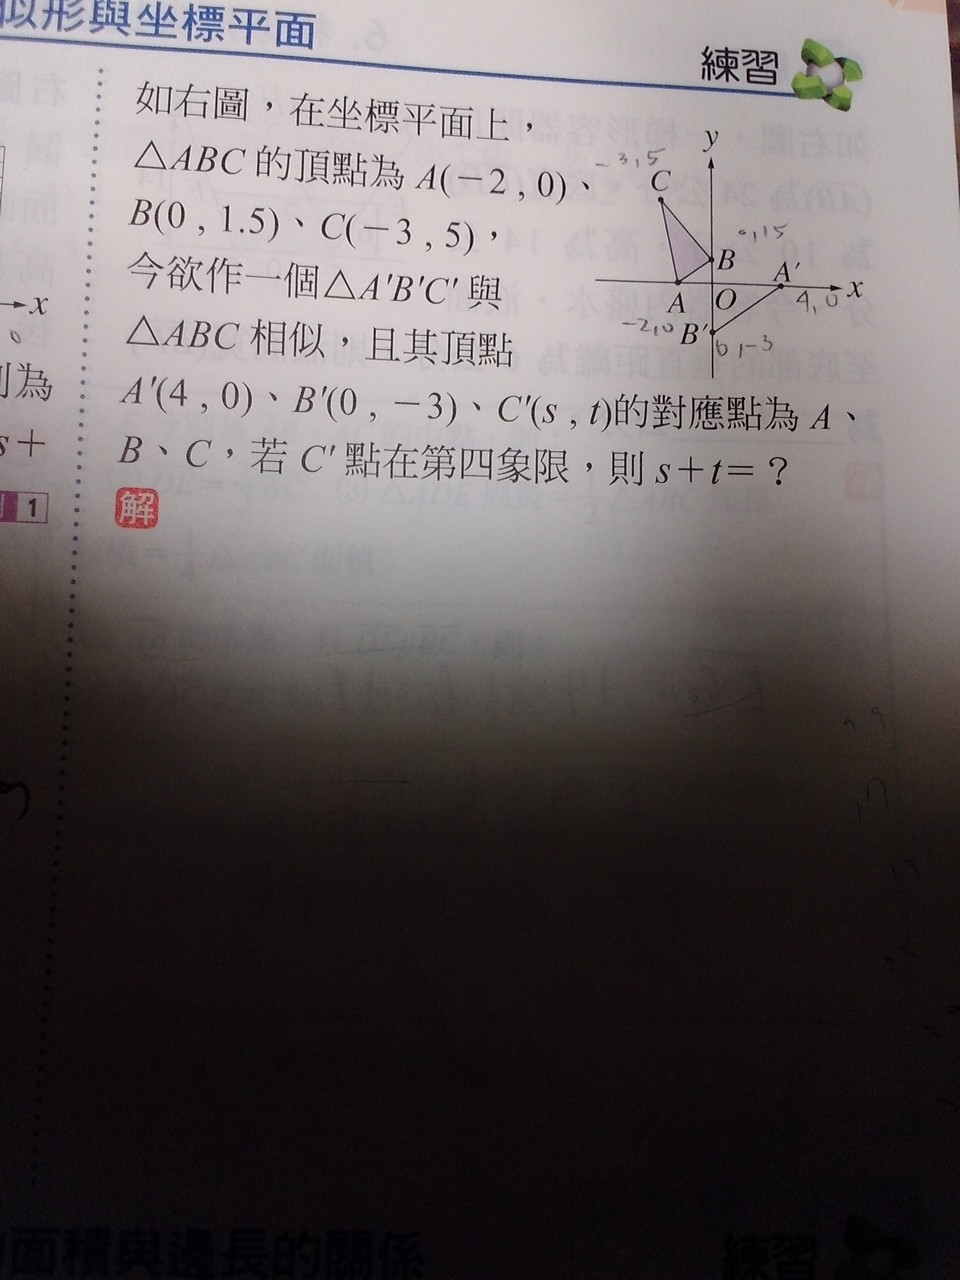 似形與坐標平面
練習
如右圖，在坐標平面上，
△ABC 的頂點為 A(−2 , 0)、
B(0 , 1.5)、C(−3 , 5)，
今欲作一個△A′B′C′ 與
△ABC 相似，且其頂點
A′(4 , 0)、B′(0 , −3)、C′(s , t)的對應點為 A、
B、C，若 C′ 點在第四象限，則 s＋t＝？
解
y
−3,5
C
0,1.5
B
A′
x
A
O
4,0
−2,0
B′
0,−3
x
0
則為
s＋
1
面積與邊長的關係
練習